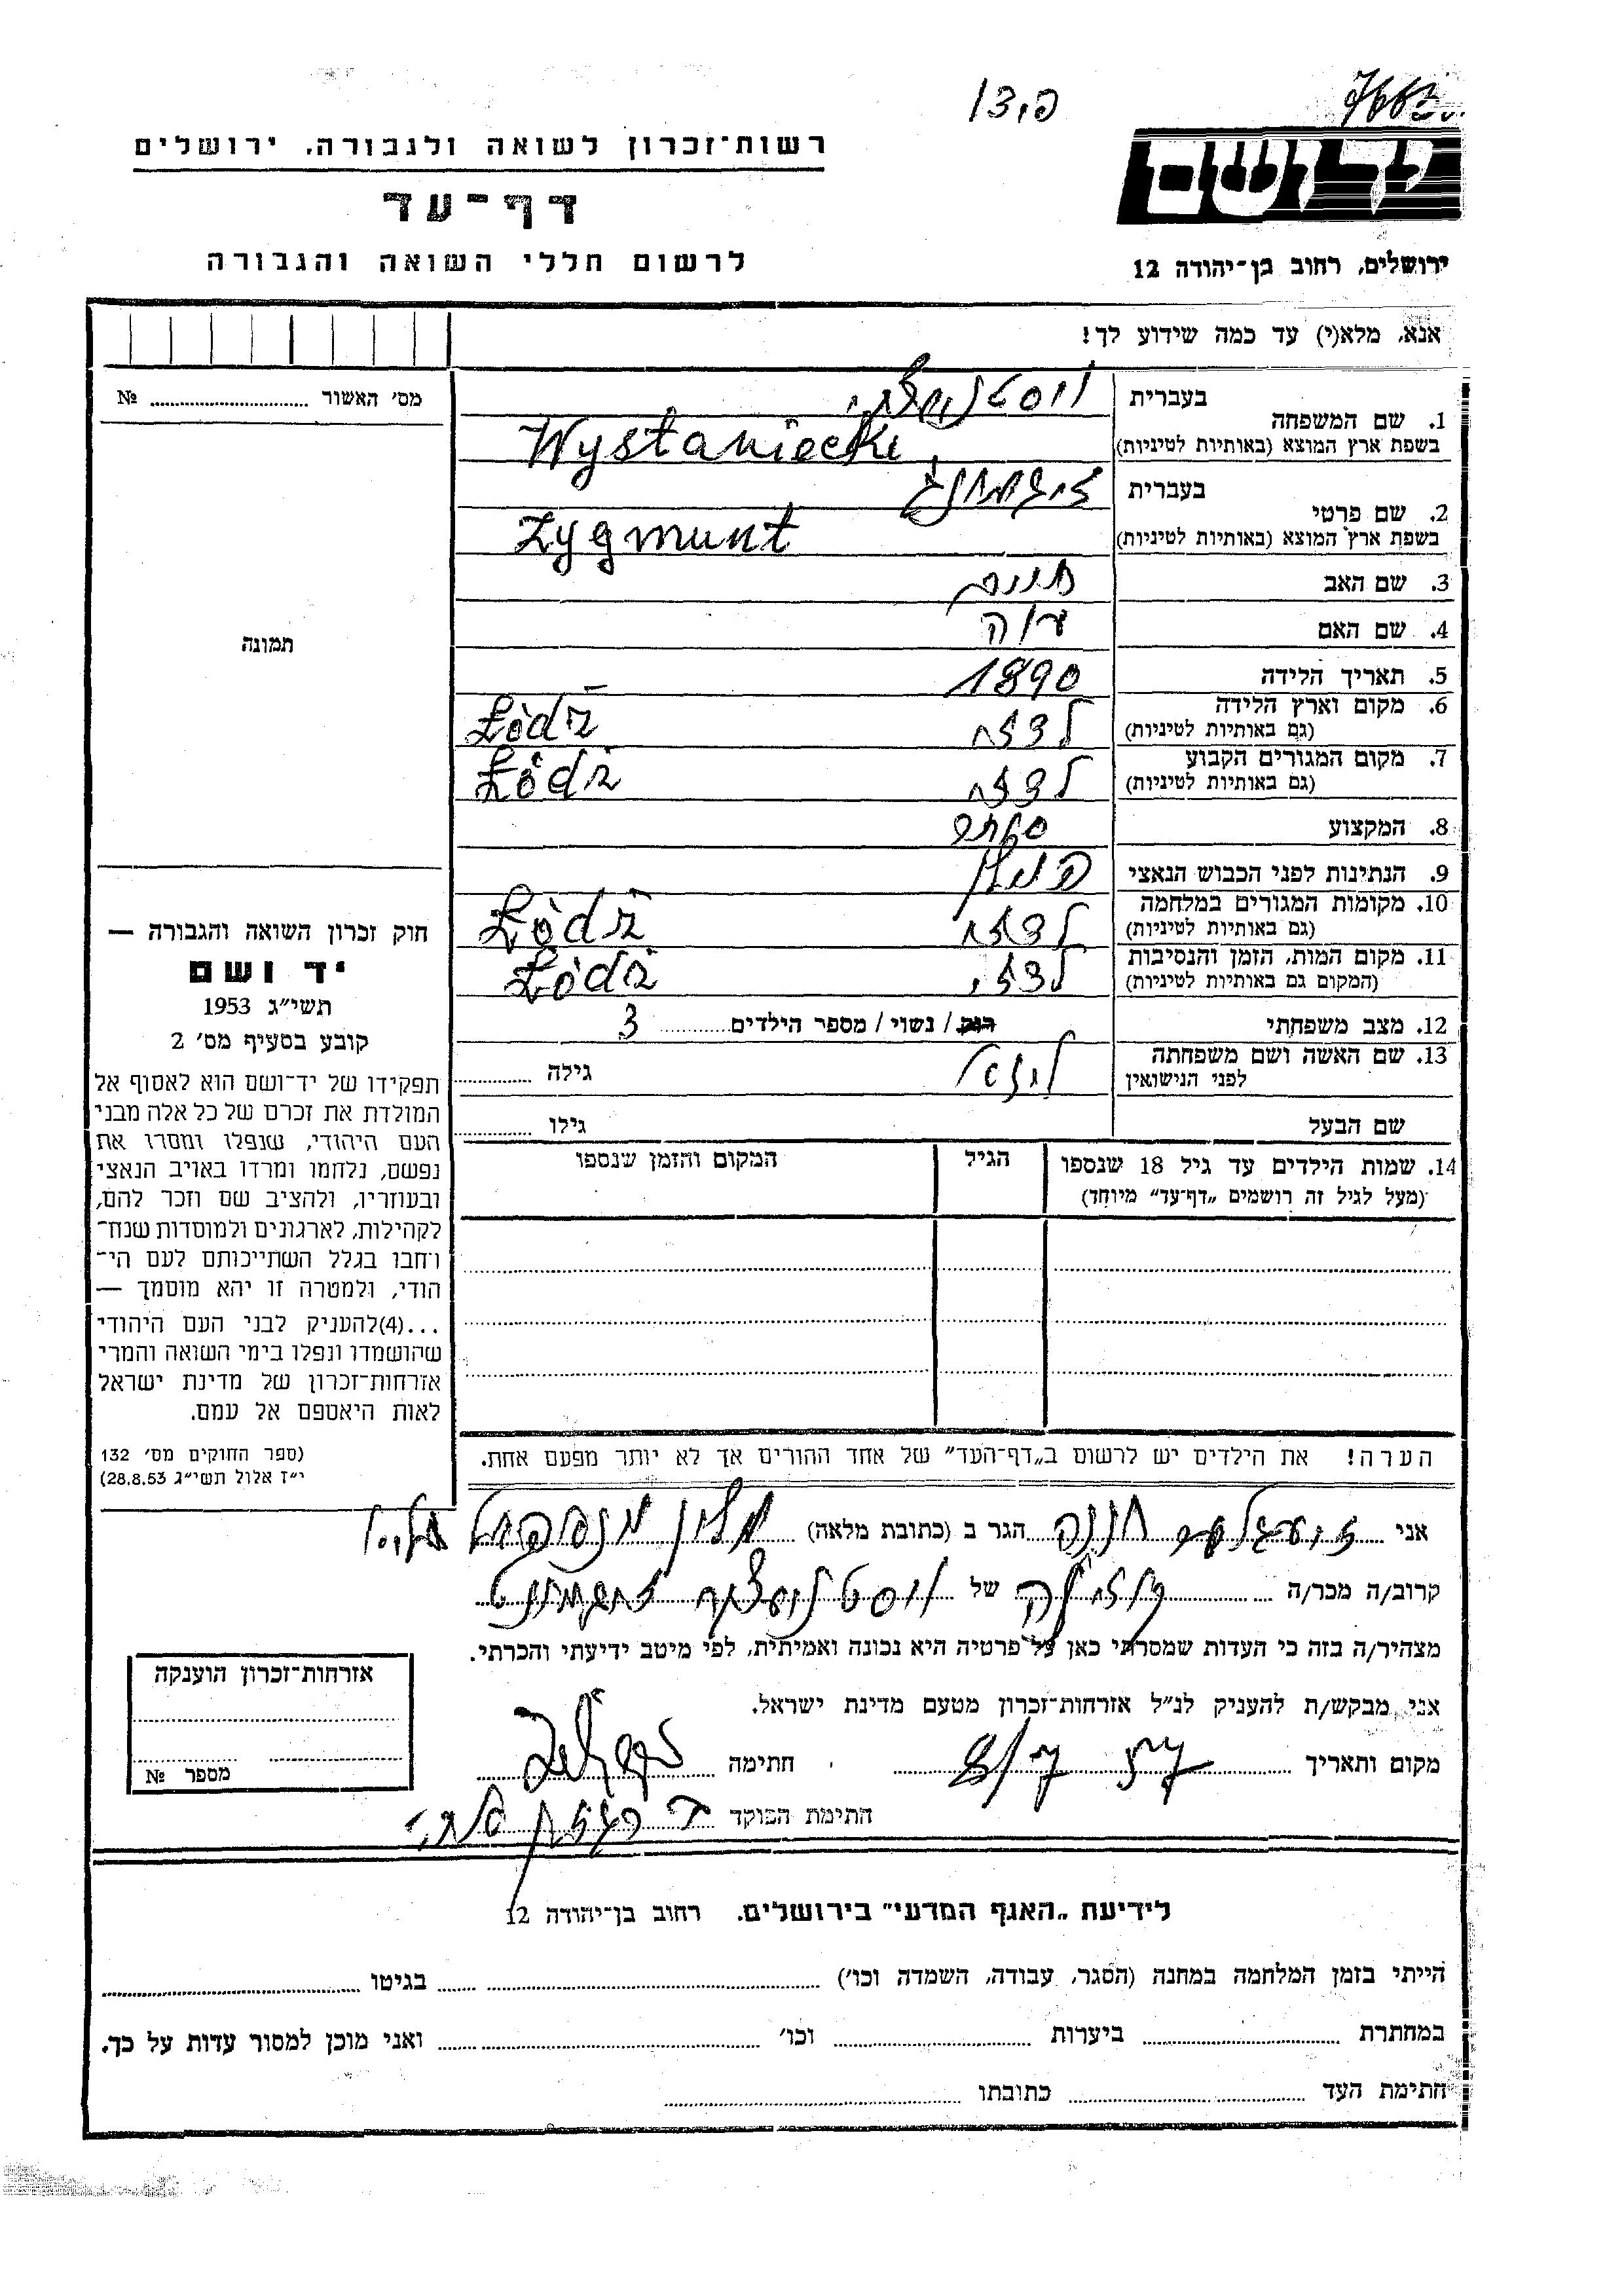 רשות־זכרון לשואה ולגבורה, ירושלים
דף־עד
לרשום חללי השואה והגבורה
יד ושם
ירושלים, רחוב בן־יהודה 12
אנא, מלא(י) עד כמה שידוע לך!
מס' האשור № 
תמונה
חוק זכרון השואה והגבורה —
יד ושם
תשי"ג 1953
קובע בסעיף מס' 2
תפקידו של יד־ושם הוא לאסוף אל
המולדת את זכרם של כל אלה מבני
העם היהודי, שנפלו ומסרו את
נפשם, נלחמו ומרדו באויב הנאצי
ובעוזריו, ולהציב שם וזכר להם,
לקהילות, לארגונים ולמוסדות שנח־
רחבו בגלל השתייכותם לעם הי־
הודי, ולמטרה זו יהא מוסמך —
...(4)להעניק לבני העם היהודי
שהושמדו ונפלו בימי השואה והמרי
אזרחות־זכרון של מדינת ישראל
לאות היאספם אל עמם.
(ספר החוקים מס' 132
י"ז אלול תשי"ג 28.8.53)
1. שם המשפחה
בעברית
בשפת ארץ המוצא (באותיות לטיניות) Wystaniecki
2. שם פרטי
בעברית
בשפת ארץ המוצא (באותיות לטיניות) Zygmunt
3. שם האב חיים
4. שם האם
5. תאריך הלידה 1890
6. מקום וארץ הלידה
(גם באותיות לטיניות) לודז' Łódź
7. מקום המגורים הקבוע
(גם באותיות לטיניות) לודז' Łódź
8. המקצוע סוחר
9. הנתינות לפני הכבוש הנאצי
10. מקומות המגורים במלחמה
(גם באותיות לטיניות) לודז' Łódź
11. מקום המות, הזמן והנסיבות
(המקום גם באותיות לטיניות) לודז' Łódź
12. מצב משפחתי רווק / נשוי / מספר הילדים 3
13. שם האשה ושם משפחתה
לפני הנישואין
גילה
שם הבעל גילו
14. שמות הילדים עד גיל 18 שנספו
(מעל לגיל זה רושמים „דף־עד" מיוחד)
הגיל
המקום והזמן שנספו
הערה! את הילדים יש לרשום ב„דף־העד" של אחד ההורים אך לא יותר מפעם אחת.
אני חנה הגר ב (כתובת מלאה)
קרוב/ה מכר/ה של
מצהיר/ה בזה כי העדות שמסרתי כאן על פרטיה היא נכונה ואמיתית, לפי מיטב ידיעתי והכרתי.
אני מבקש/ת להעניק לנ"ל אזרחות־זכרון מטעם מדינת ישראל.
מקום ותאריך חתימה
חתימת הפוקד
אזרחות־זכרון הוענקה
מספר №
לידיעת „האגף המדעי" בירושלים. רחוב בן־יהודה 12
הייתי בזמן המלחמה במחנה (הסגר, עבודה, השמדה וכו') בגיטו
במחתרת ביערות וכו' ואני מוכן למסור עדות על כך.
חתימת העד כתובתו